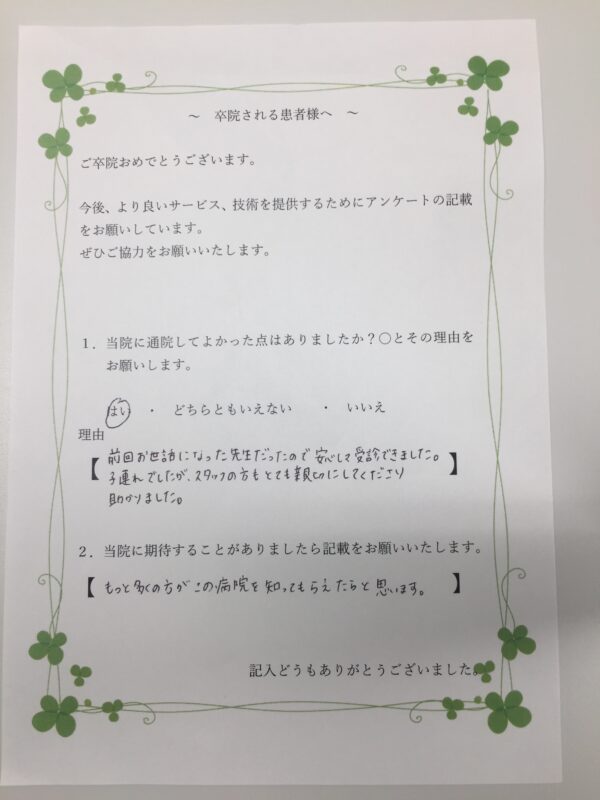 ～ 卒院される患者様へ ～
ご卒院おめでとうございます。
今後、より良いサービス、技術を提供するためにアンケートの記載
をお願いしています。
ぜひご協力をお願いいたします。
１．当院に通院してよかった点はありましたか？〇とその理由を
お願いします。
はい ・ どちらともいえない ・ いいえ
理由
【 前回お世話になった先生だったので安心して受診できました。
子連れでしたが、スタッフの方もとても親切にしてくださり
助かりました。 】
２．当院に期待することがありましたら記載をお願いいたします。
【 もっと多くの方がこの病院を知ってもらえたらと思います。 】
記入どうもありがとうございました。